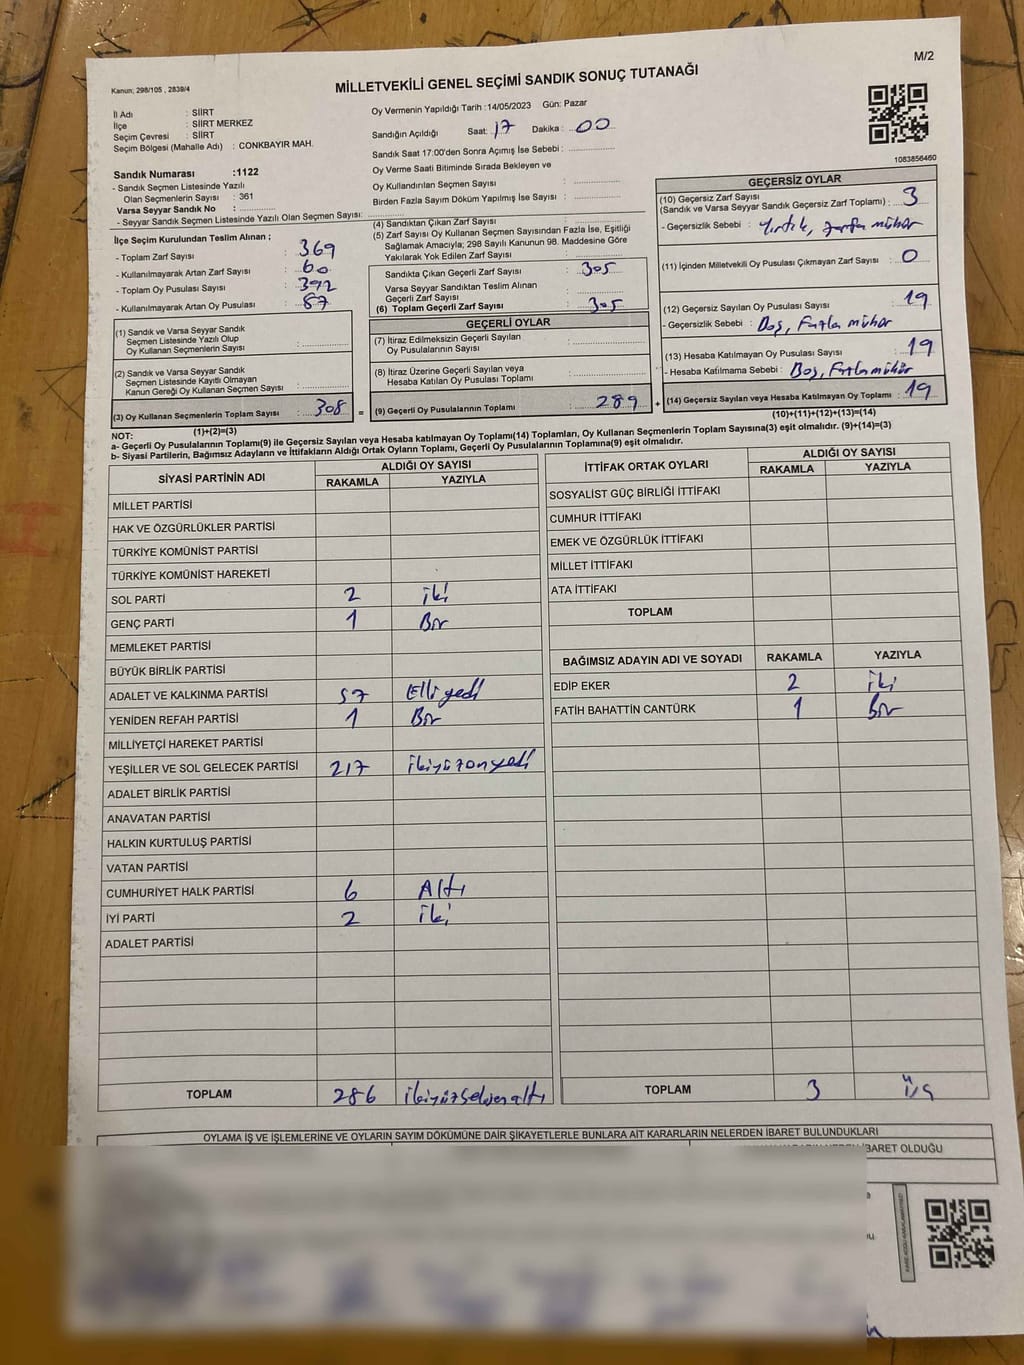 M/2
Kanun; 298/105 , 2839/4
MİLLETVEKİLİ GENEL SEÇİMİ SANDIK SONUÇ TUTANAĞI
İl Adı : SİİRT
İlçe : SİİRT MERKEZ
Seçim Çevresi : SİİRT
Seçim Bölgesi (Mahalle Adı) : CONKBAYIR MAH.
Oy Vermenin Yapıldığı Tarih :14/05/2023 Gün: Pazar
Sandığın Açıldığı Saat: 17 Dakika : 00
Sandık Saat 17:00'den Sonra Açımış İse Sebebi :
Oy Verme Saati Bitiminde Sırada Bekleyen ve
Oy Kullandırılan Seçmen Sayısı :
Birden Fazla Sayım Döküm Yapılmış İse Sayısı :
1083856460
Sandık Numarası :1122
- Sandık Seçmen Listesinde Yazılı
Olan Seçmenlerin Sayısı : 361
Varsa Seyyar Sandık No :
- Seyyar Sandık Seçmen Listesinde Yazılı Olan Seçmen Sayısı:
İlçe Seçim Kurulundan Teslim Alınan ;
- Toplam Zarf Sayısı : 369
- Kullanılmayarak Artan Zarf Sayısı : 60
- Toplam Oy Pusulası Sayısı : 392
- Kullanılmayarak Artan Oy Pusulası : 87
(1) Sandık ve Varsa Seyyar Sandık
Seçmen Listesinde Yazılı Olup
Oy Kullanan Seçmenlerin Sayısı :
(2) Sandık ve Varsa Seyyar Sandık
Seçmen Listesinde Kayıtlı Olmayan
Kanun Gereği Oy Kullanan Seçmen Sayısı :
(3) Oy Kullanan Seçmenlerin Toplam Sayısı : 308 =
(1)+(2)=(3)
(4) Sandıktan Çıkan Zarf Sayısı :
(5) Zarf Sayısı Oy Kullanan Seçmen Sayısından Fazla İse, Eşitliği
Sağlamak Amacıyla; 298 Sayılı Kanunun 98. Maddesine Göre
Yakılarak Yok Edilen Zarf Sayısı :
Sandıkta Çıkan Geçerli Zarf Sayısı : 305
Varsa Seyyar Sandıktan Teslim Alınan
Geçerli Zarf Sayısı :
(6) Toplam Geçerli Zarf Sayısı : 305
GEÇERLİ OYLAR
(7) İtiraz Edilmeksizin Geçerli Sayılan
Oy Pusulalarının Sayısı :
(8) İtiraz Üzerine Geçerli Sayılan veya
Hesaba Katılan Oy Pusulası Toplamı :
(9) Geçerli Oy Pusulalarının Toplamı : 289 +
GEÇERSİZ OYLAR
(10) Geçersiz Zarf Sayısı
(Sandık ve Varsa Seyyar Sandık Geçersiz Zarf Toplamı) : 3
- Geçersizlik Sebebi : Yırtık, zarfta mühür
(11) İçinden Milletvekili Oy Pusulası Çıkmayan Zarf Sayısı : 0
(12) Geçersiz Sayılan Oy Pusulası Sayısı : 19
- Geçersizlik Sebebi : Boş, Fazla mühür
(13) Hesaba Katılmayan Oy Pusulası Sayısı : 19
- Hesaba Katılmama Sebebi : Boş, Fazla mühür
(14) Geçersiz Sayılan veya Hesaba Katılmayan Oy Toplamı : 19
(10)+(11)+(12)+(13)=(14)
NOT:
a- Geçerli Oy Pusulalarının Toplamı(9) ile Geçersiz Sayılan veya Hesaba katılmayan Oy Toplamı(14) Toplamları, Oy Kullanan Seçmenlerin Toplam Sayısına(3) eşit olmalıdır. (9)+(14)=(3)
b- Siyasi Partilerin, Bağımsız Adayların ve İttifakların Aldığı Ortak Oyların Toplamı, Geçerli Oy Pusulalarının Toplamına(9) eşit olmalıdır.
SİYASİ PARTİNİN ADI ALDIĞI OY SAYISI
RAKAMLA YAZIYLA
MİLLET PARTİSİ
HAK VE ÖZGÜRLÜKLER PARTİSİ
TÜRKİYE KOMÜNİST PARTİSİ
TÜRKİYE KOMÜNİST HAREKETİ
SOL PARTİ 2 iki
GENÇ PARTİ 1 Bir
MEMLEKET PARTİSİ
BÜYÜK BİRLİK PARTİSİ
ADALET VE KALKINMA PARTİSİ 57 Elli yedi
YENİDEN REFAH PARTİSİ 1 Bir
MİLLİYETÇİ HAREKET PARTİSİ
YEŞİLLER VE SOL GELECEK PARTİSİ 217 ikiyüzonyedi
ADALET BİRLİK PARTİSİ
ANAVATAN PARTİSİ
HALKIN KURTULUŞ PARTİSİ
VATAN PARTİSİ
CUMHURİYET HALK PARTİSİ 6 Altı
İYİ PARTİ 2 iki
ADALET PARTİSİ
TOPLAM 286 ikiyüzseksenaltı
İTTİFAK ORTAK OYLARI ALDIĞI OY SAYISI
RAKAMLA YAZIYLA
SOSYALİST GÜÇ BİRLİĞİ İTTİFAKI
CUMHUR İTTİFAKI
EMEK VE ÖZGÜRLÜK İTTİFAKI
MİLLET İTTİFAKI
ATA İTTİFAKI
TOPLAM
BAĞIMSIZ ADAYIN ADI VE SOYADI RAKAMLA YAZIYLA
EDİP EKER 2 iki
FATİH BAHATTİN CANTÜRK 1 Bir
TOPLAM 3 üç
OYLAMA İŞ VE İŞLEMLERİNE VE OYLARIN SAYIM DÖKÜMÜNE DAİR ŞİKAYETLERLE BUNLARA AİT KARARLARIN NELERDEN İBARET BULUNDUKLARI
İBARET OLDUĞU